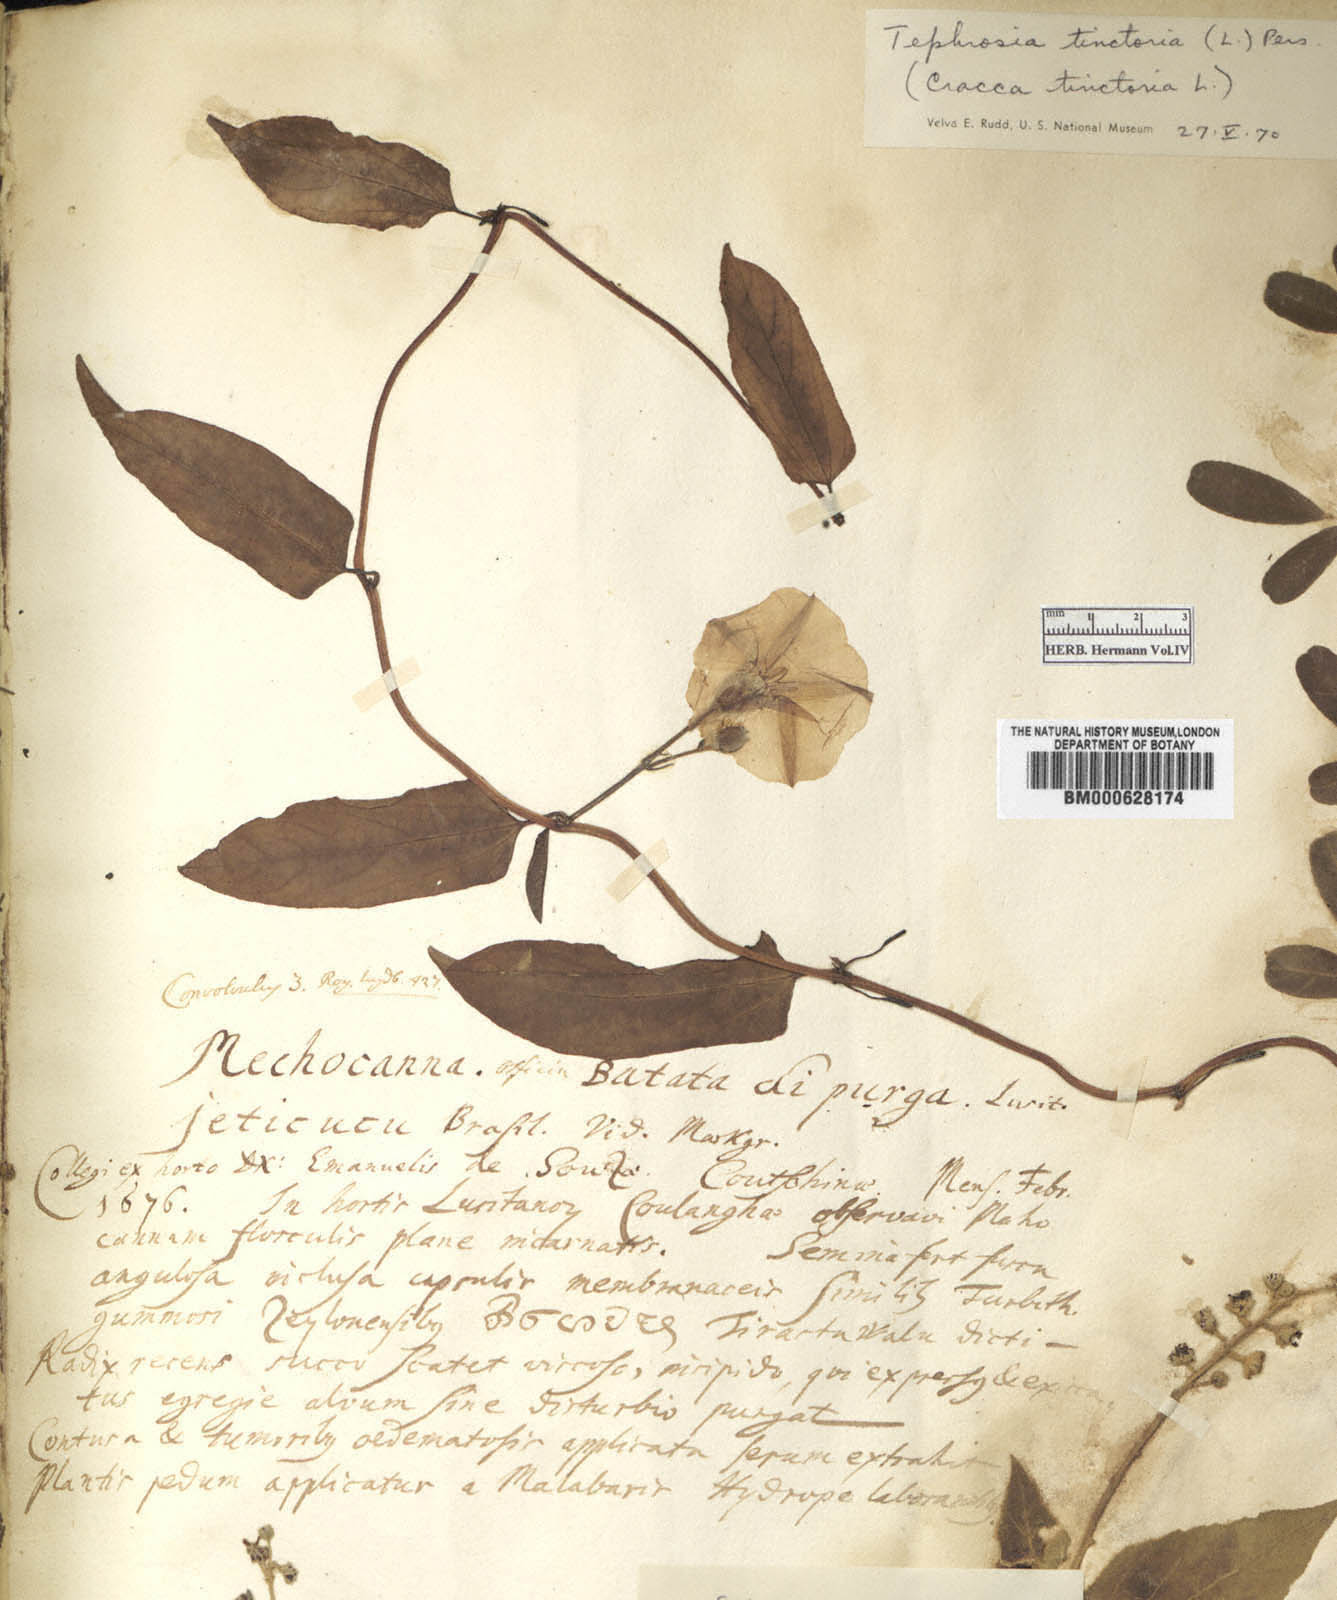 Tephrosia tinctoria (L.) Pers.
(Cracca tinctoria L.)
Velva E. Rudd, U. S. National Museum 27.V.70
mm 1 2 3
HERB. Hermann Vol.IV
THE NATURAL HISTORY MUSEUM,LONDON
DEPARTMENT OF BOTANY
BM000628174
Convolvulus 3. Roy. lugdb. 427.
Mechocanna. officin Batata di purga. Lusit.
jeticucu Brasil. Vid. Markgr.
Collegi ex horto Emanuelis de Souza Coutschinæ Mens. Febr.
1676. In hortis Lusitanor Coulanghæ observavi Mecho
cannam flosculis plane incarnatis. Semina fert
angulosa inclusa capsulis membranaceis similib Turbith.
gummosi Zeylonensibus Tirastawalu dicti —
Radix recens succo scatet viscoso, insipido, qui expressus &
tus egregie alvum sine disturbio purgat
Contusa & tumoribus oedematosis applicata serum extrahit
Plantis pedum applicatur a Malabaris Hydrope